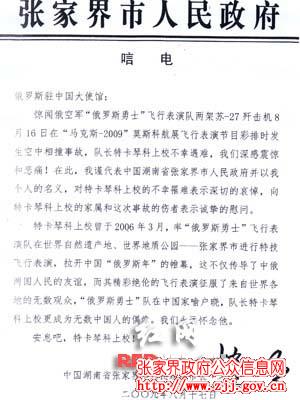 张家界市人民政府
唁 电
俄罗斯驻中国大使馆：
惊闻俄空军“俄罗斯勇士”飞行表演队两架苏-27 歼击机 8
月 16 日在“马克斯-2009”莫斯科航展飞行表演节目彩排时发
生空中相撞事故，队长特卡琴科上校不幸遇难，我们深感震惊
和悲痛！在此，我谨代表中国湖南省张家界市人民政府并以我
个人的名义，对特卡琴科上校的不幸罹难表示深切的哀悼，向
特卡琴科上校的家属和这次事故的伤者表示诚挚的慰问。
特卡琴科上校曾于 2006 年 3 月，率“俄罗斯勇士”飞行表
演队在世界自然遗产地、世界地质公园——张家界市进行特技
飞行表演，拉开中国“俄罗斯年”的帷幕，这不仅传导了中俄
两国人民的友谊，而其精彩绝伦的飞行表演征服了来自世界各
地的无数观众，“俄罗斯勇士”队在中国家喻户晓，队长特卡琴
科上校更成为无数中国人的偶像。我们永远怀念他。
安息吧，特卡琴科上校！
红网
中国湖南省张家界
二〇〇九年八月十七日
张家界政府公众信息网
www.zjj.gov.cn